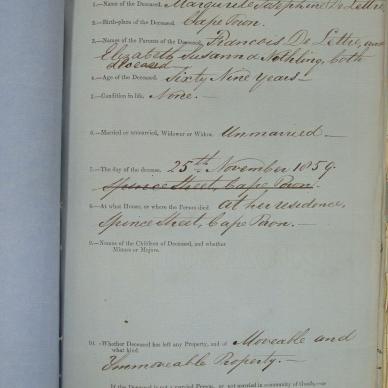 1.—Name of the Deceased. Marguerite Josephine De Lettre
2.—Birth-place of the Deceased. Cape Town.
3.—Names of the Parents of the Deceased. Francois De Lettre, and
Elizabeth Susanna Nothling, both
deceased —
4.—Age of the Deceased. Sixty Nine Years —
5.—Condition in life. None. —
6.—Married or unmarried, Widower or Widow. Unmarried —
7.—The day of the decease. 25th November 1859.
Spence Street, Cape Town.
8.—At what House, or where the Person died at her residence,
Spence Street, Cape Town. —
9.—Names of the Children of Deceased, and whether
Minors or Majors.
10.—Whether Deceased has left any Property, and of Moveable and
what kind.
Immoveable Property. —
If the Deceased is not a married Person, or not married in community of Goods,—or